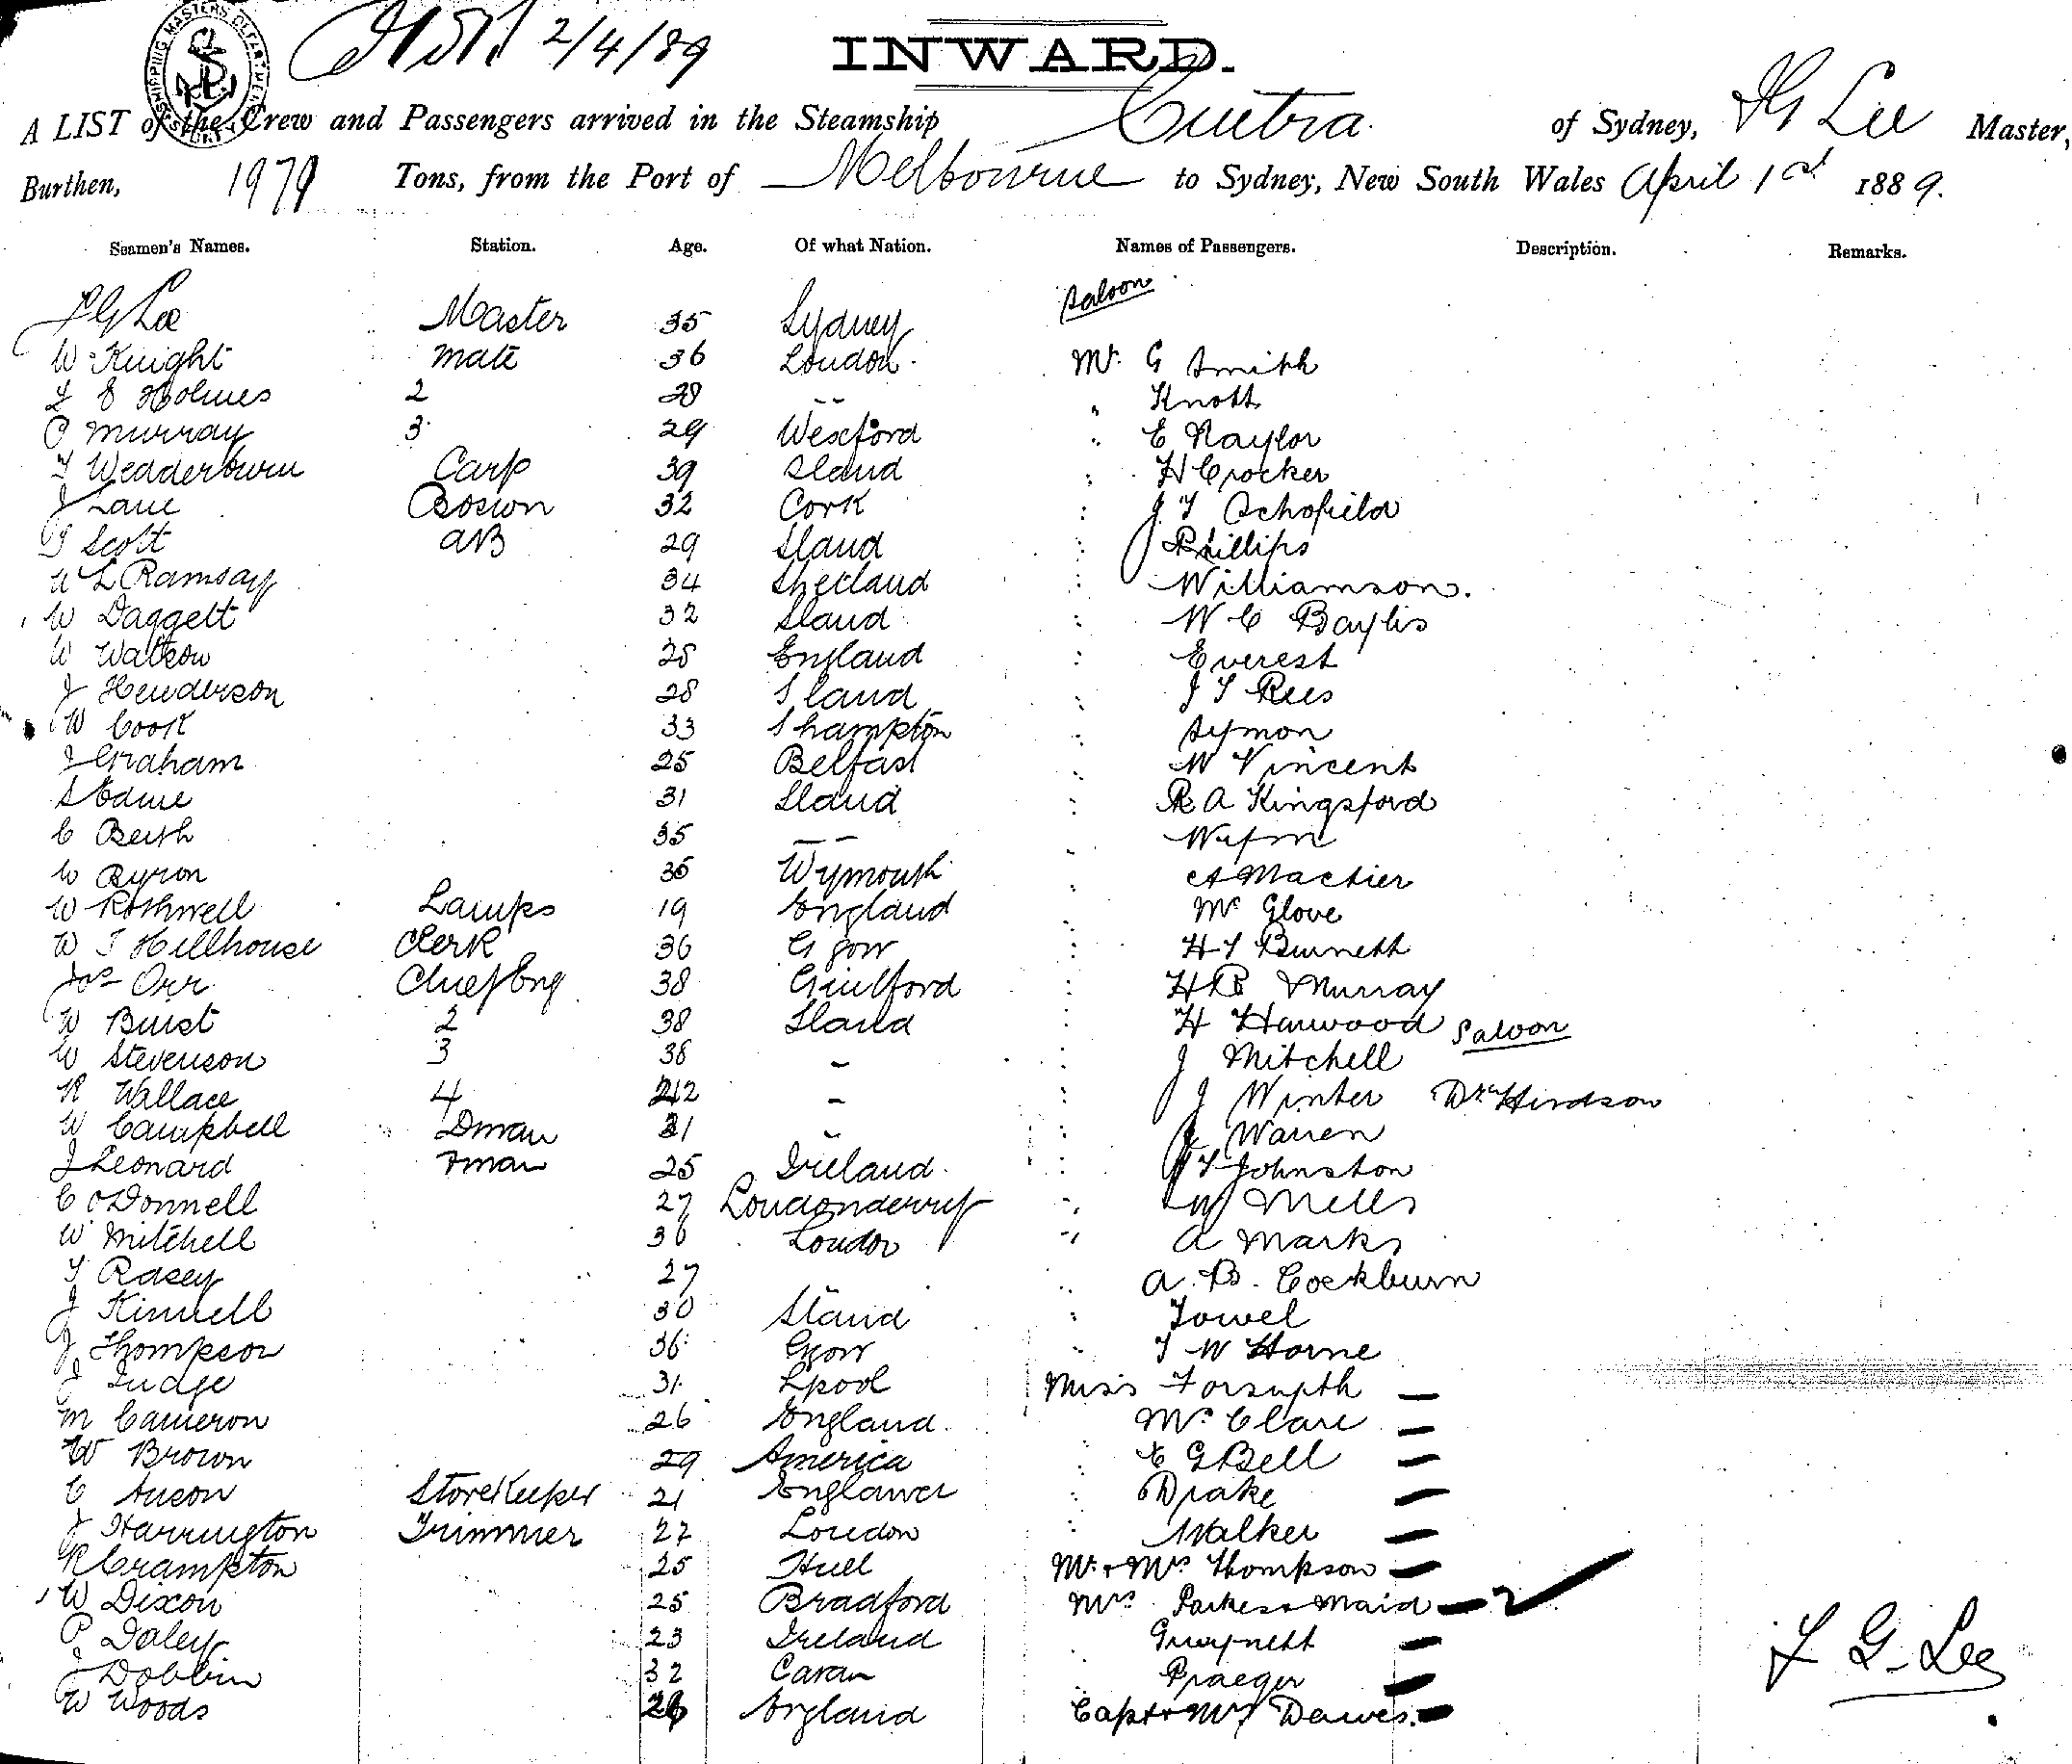 SHIPPING MASTERS DEPARTMENT SYDNEY
2/4/89
INWARD.
A LIST of the Crew and Passengers arrived in the Steamship Cintra of Sydney, F G Lee Master,
Burthen, 1979 Tons, from the Port of Melbourne to Sydney, New South Wales April 1st 1889.
Seamen's Names. Station. Age. Of what Nation. Names of Passengers. Description. Remarks.
Saloon
F G Lee Master 35 Sydney
W Knight Mate 36 London Mr. G Smith
Holmes 2 28 -- " Knott
P Murray 3 29 Wexford " E Naylor
T Wedderburn Carp 39 Sland " H Crocker
J Lane Boswn 32 Cork " J T Schofield
T Scott AB 29 Sland " Phillips
L Ramsay 34 Shetland " Williamson.
W Daggett 32 Sland " W C Baylis
W Watson 25 England " Everest
J Henderson 28 Sland " J T Rees
W Cook 33 Shampton " Symon
J Graham 25 Belfast " W Vincent
S Edme 31 Sland " R A Kingsford
C Beith 35 -- "
W Byron 35 Wymouth " A Mactier
W Rothwell Lamps 19 England " Mc Glove
W T Hillhouse Clerk 36 Ggow " H T Burnett
Jas Orr Chief Eng 38 Guilford " H B Murray
W Buist 2 38 Sland " H Harwood Saloon
W Stevenson 3 38 - " J Mitchell
R Wallace 4 - " J Winter Dr Hindson
W Campbell Dman 31 - " J Warren
J Leonard Fman 25 Ireland " Johnston
C O'Donnell 27 Londonderry " W Mells
W Mitchell 36 London " A Marks
T Rasey 27 " A. B. Cockburn
J Kinnell 30 Sland " Towel
J Thompson 36 Ggow " T W Horne
J Judge 31 Lpool Miss Forsyth —
M Cameron 26 England Mc Clare —
W Brown 29 America " E G Bell —
C Anson StoreKeeper 21 England " Drake —
J Harrington Trimmer 27 London " Walker —
R Crampton 25 Hull Mr. + Mrs Thompson —
W Dixon 25 Bradford Mrs Parkes + Maid — 2
P Daley 23 Ireland " Gwynett —
J Dobbin 32 Cavan Praeger —
W Woods 26 England Capt + Mrs Dawes. —
F G. Lee